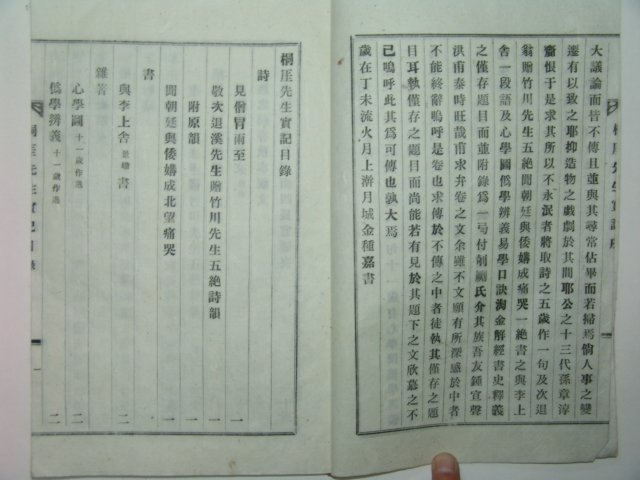 大議論而皆不傳且並與其尋常佔畢而若掃焉倘人事之變
遷有以致之耶抑造物之戲劇於其間耶公之十三代孫章淳
齎恨于是求其所以不永泯者將取詩之五歲作一句及次退
翁贈竹川先生五絶詩聞朝廷與倭媾成痛哭一絶書之與李上
舍一段語及心學圖僞學辨義易學口訣淘金解經書史釋義
之僅存題目而並附錄爲一弓付剞劂氏介其族吾友鍾宣聲
洪甫泰時旺哉甫求弁卷之文余雖不文顧有所深感於中者
不能終辭嗚呼是卷也求傳於不傳之中者徒執其僅存之題
目耳孰僅存之題目而尚能若有見於其題下之文欣慕之不
已嗚呼此其爲可傳也孰大焉
歲在丁未流火月上澣月城金種嘉書
桐厓先生實記目錄
詩
見僧冒雨至 一
敬次退溪先生贈竹川先生五絶詩韻 一
附原韻 一
聞朝廷與倭媾成北望痛哭 一
書
與李上舍 書 一
雜著
心學圖 十一歲作逸 二
僞學辨義 十一歲作逸 二
桐厓先生實記 目錄 一